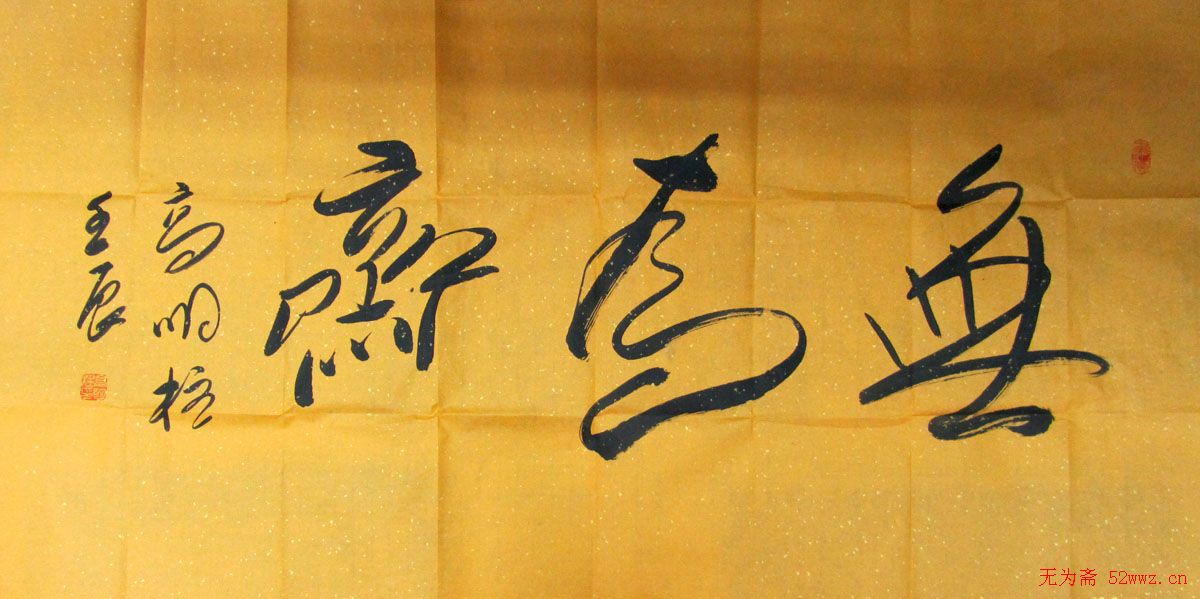 無為齋
高明
壬辰
无为斋 52wwz.cn